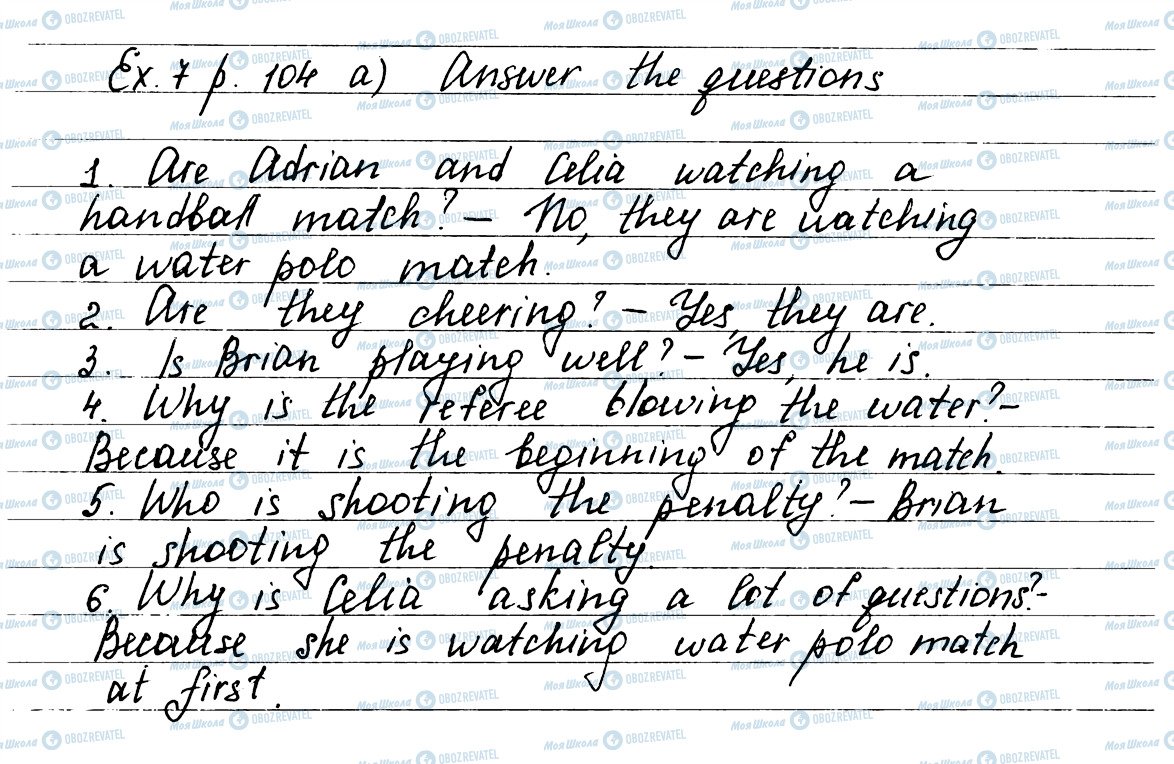 Ex. 7 p. 104 a) Answer the questions
1. Are Adrian and Celia watching a
handball match? — No, they are watching
a water polo match.
2. Are they cheering? — Yes, they are.
3. Is Brian playing well? — Yes, he is.
4. Why is the referee blowing the water? —
Because it is the beginning of the match.
5. Who is shooting the penalty? — Brian
is shooting the penalty.
6. Why is Celia asking a lot of questions? -
Because she is watching water polo match
at first.
Моя Школа OBOZREVATEL